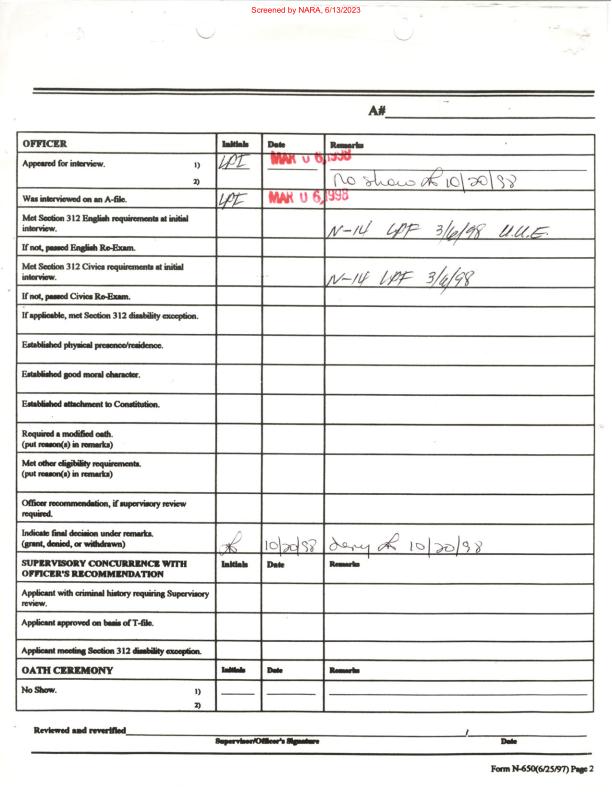 Screened by NARA, 6/13/2023
A#
OFFICER Initials Date Remarks
Appeared for interview. 1) MAR 06,1998
2) No show 10/20/98
Was interviewed on an A-file. MAR 06,1998
Met Section 312 English requirements at initial
interview. N-14 LPF 3/6/98 U.U.E.
If not, passed English Re-Exam.
Met Section 312 Civics requirements at initial
interview. N-14 LPF 3/6/98
If not, passed Civics Re-Exam.
If applicable, met Section 312 disability exception.
Established physical presence/residence.
Established good moral character.
Established attachment to Constitution.
Required a modified oath.
(put reason(s) in remarks)
Met other eligibility requirements.
(put reason(s) in remarks)
Officer recommendation, if supervisory review
required.
Indicate final decision under remarks.
(grant, denied, or withdrawn) 10/20/98 deny 10/20/98
SUPERVISORY CONCURRENCE WITH Initials Date Remarks
OFFICER'S RECOMMENDATION
Applicant with criminal history requiring Supervisory
review.
Applicant approved on basis of T-file.
Applicant meeting Section 312 disability exception.
OATH CEREMONY Initials Date Remarks
No Show. 1)
2)
Reviewed and reverified /
Supervisor/Officer's Signature Date
Form N-650(6/25/97) Page 2